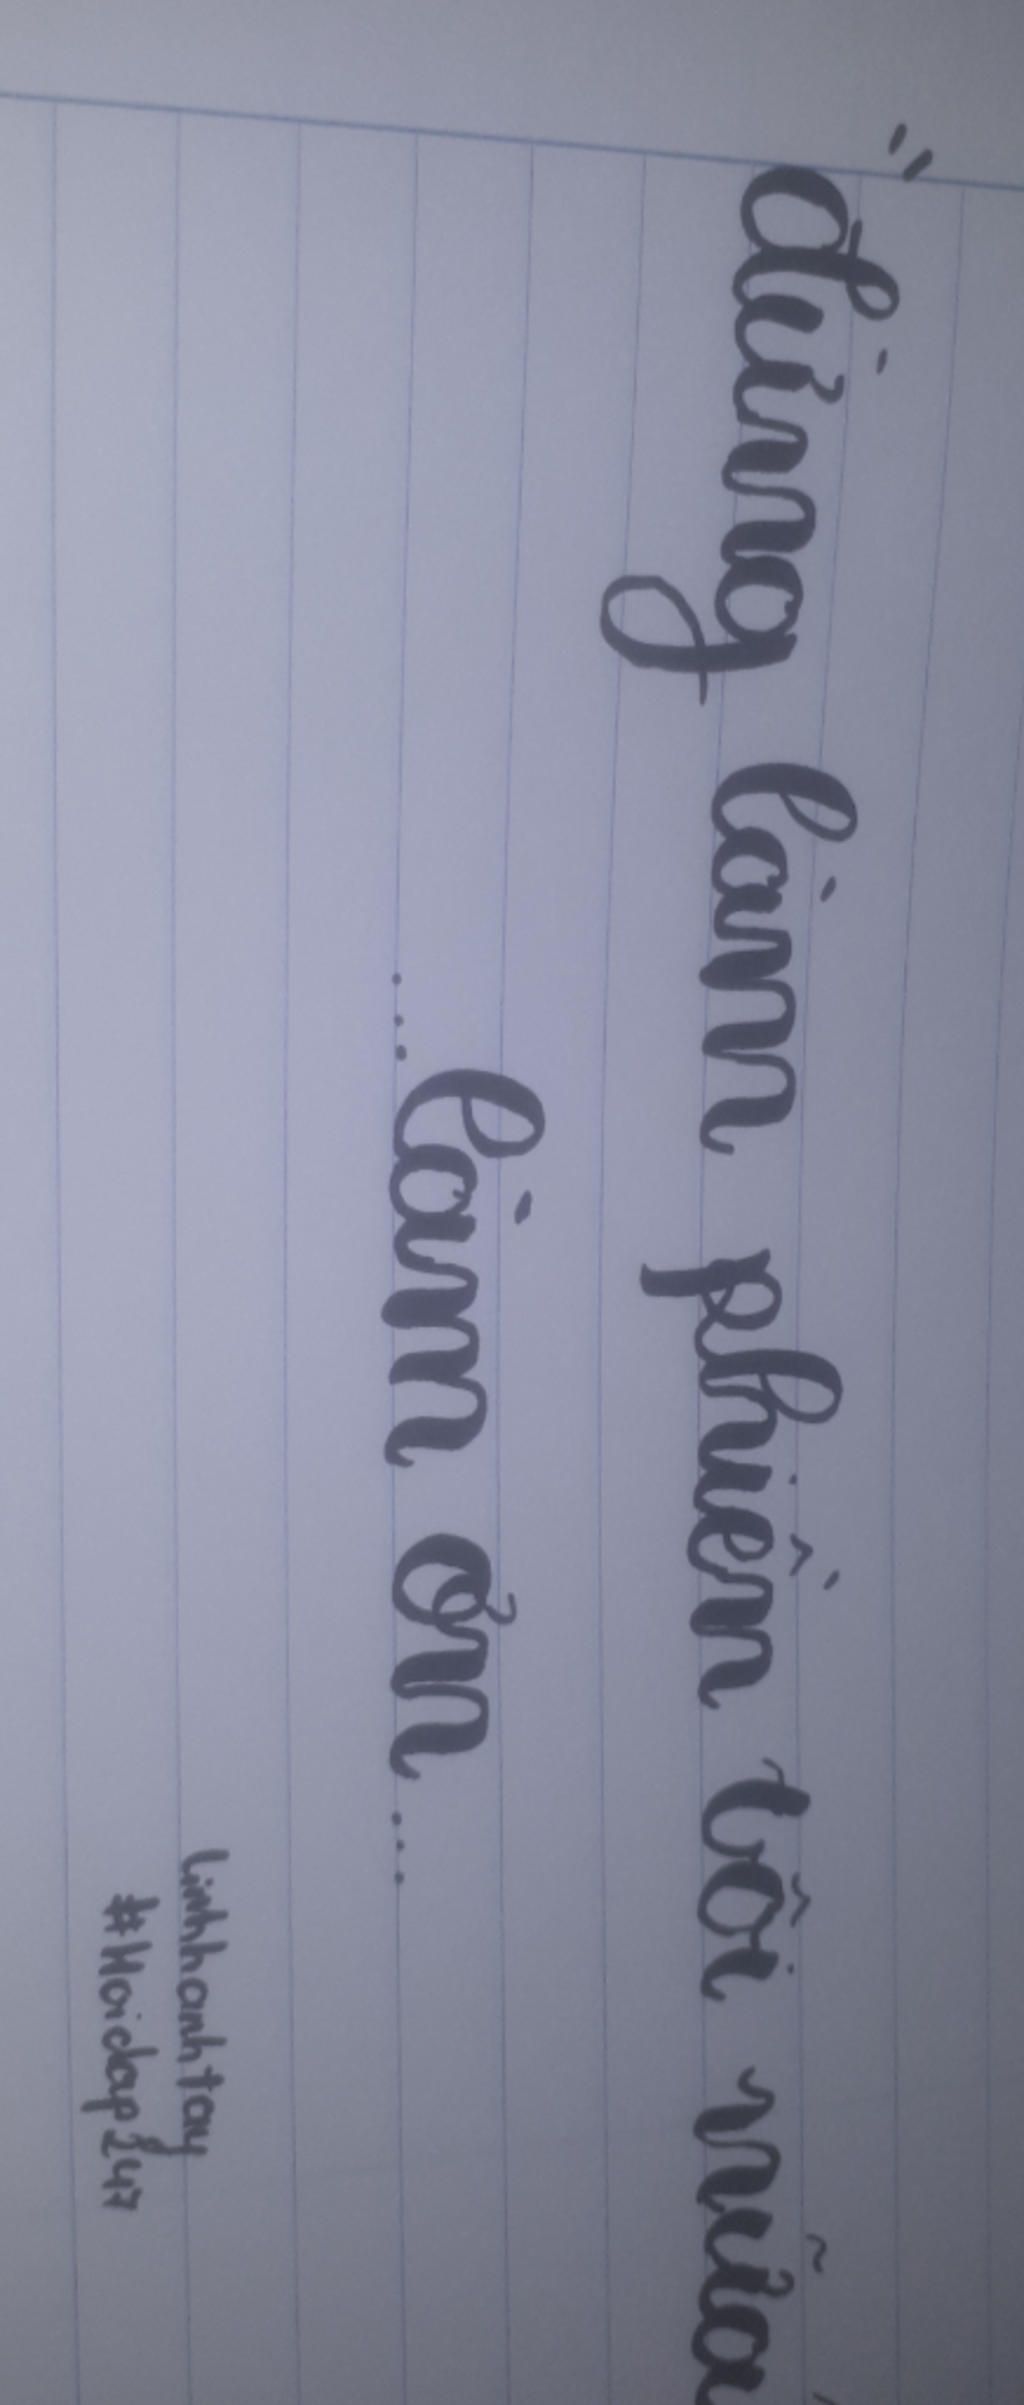 "đừng làm phiền tôi nữa
...làm ơn...
linhhanhtay
#Hoidap247